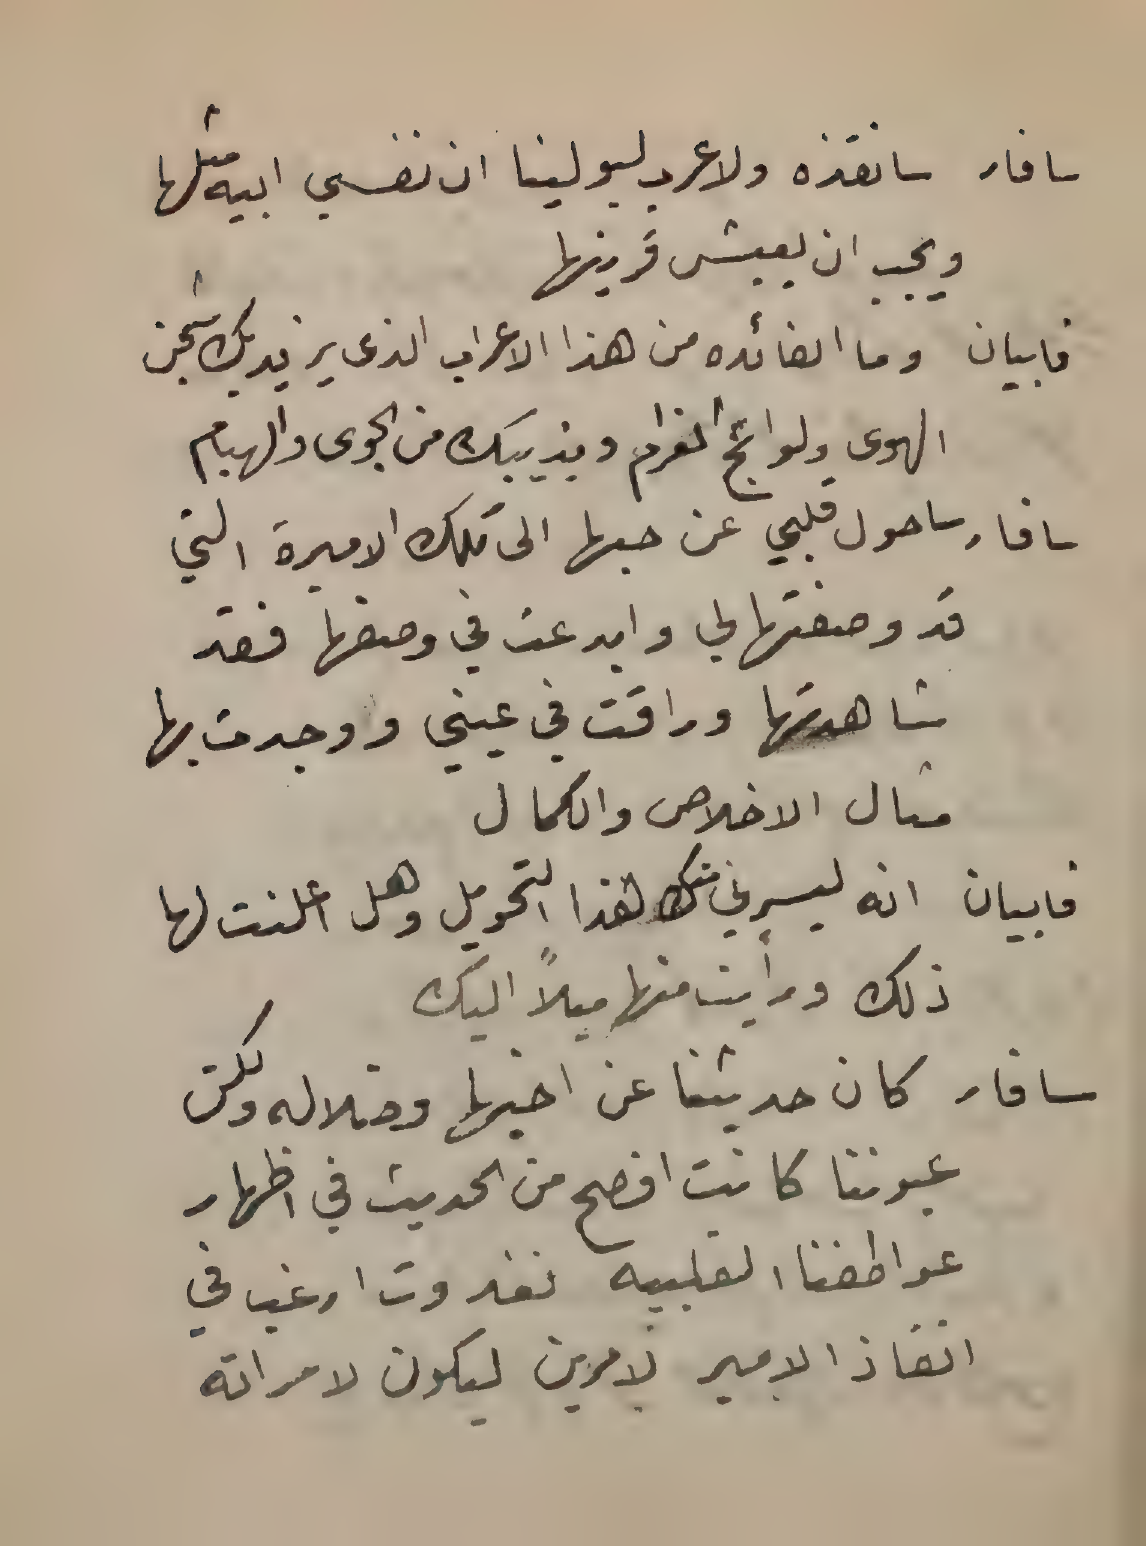 سافار سانقذه ولاعرب لبولينا ان نفسي ابيه مثلها
ويجب ان يعيش قرينها
فابيان وما الفائده من هذا الاعراب الذى يزيد بك شجن
الهوى ولوائج الغرام ويذيبك من الجوى والهيام
سافار ساحول قلبي عن حبها الى تلك الاميرة التي
قد وصفتها لي وابدعت في وصفها فقد
شاهدتها وراقت في عيني ووجدت بها
مثال الاخلاص والكمال
فابيان انه ليسرني منك هذا التحويل وهل اعلنت لها
ذلك ورأيت منها ميلاً اليك
سافار كان حديثنا عن اخيها وضلاله ولكن
عيوننا كانت افصح من الحديث في اظهار
عواطفنا القلبيه فغدوت ارغب في
انقاذ الامير لامرين ليكون لامراته